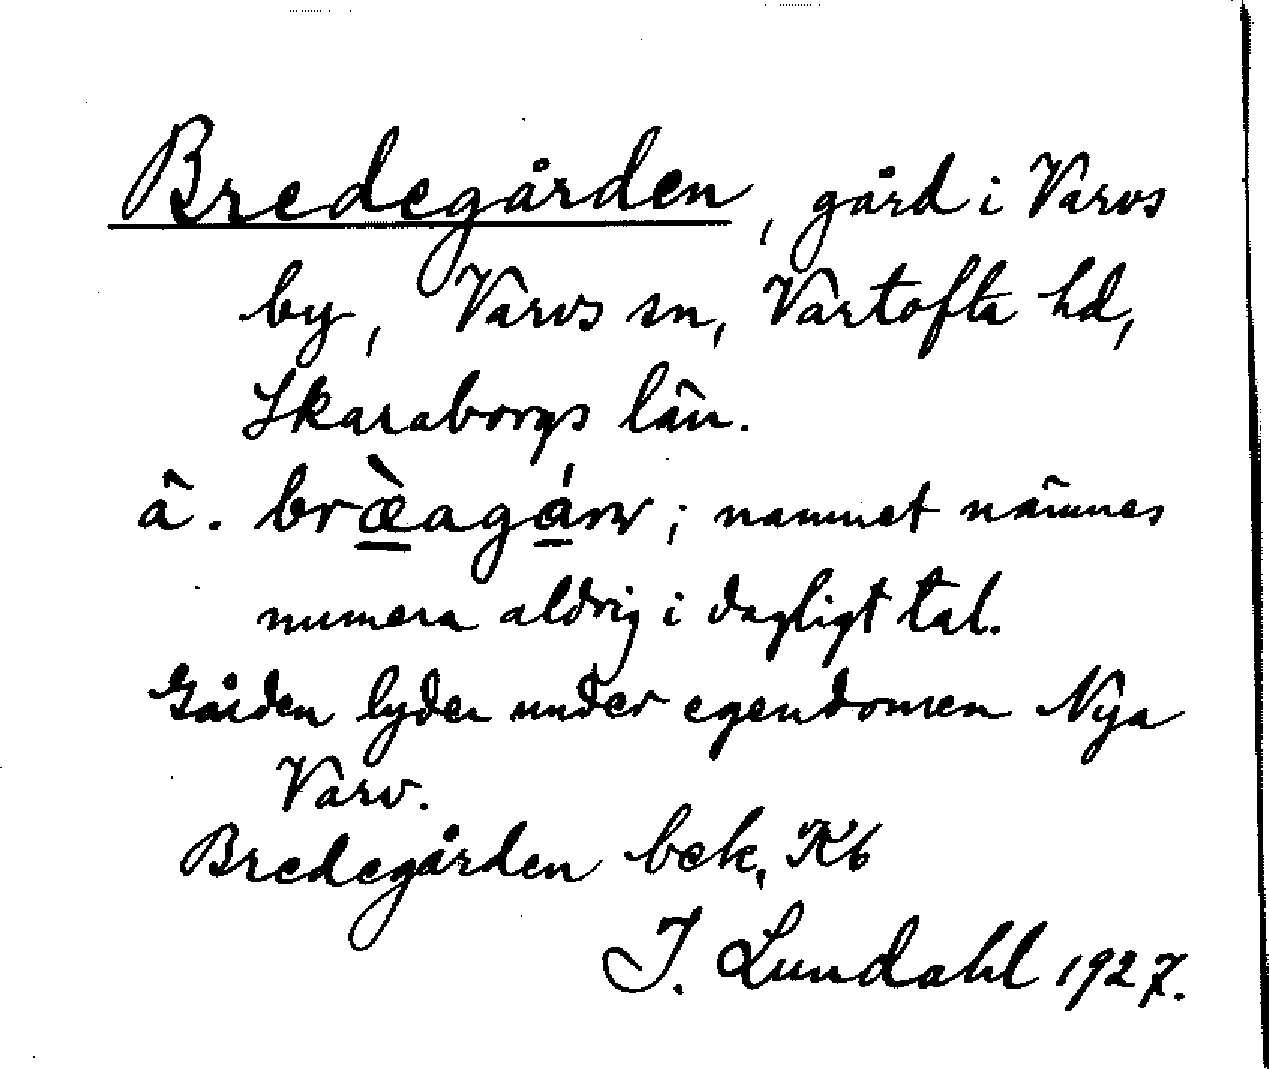 Bredegården, gård i Varvs
by, Varvs sn, Vartofta hd,
Skaraborgs län.
ä. bræ̀agáṙn; namnet nämnes
numera aldrig i dagligt tal.
Gården lyder under egendomen Nya
Varv.
Bredegården bek, Kb
I. Lundahl 1927.